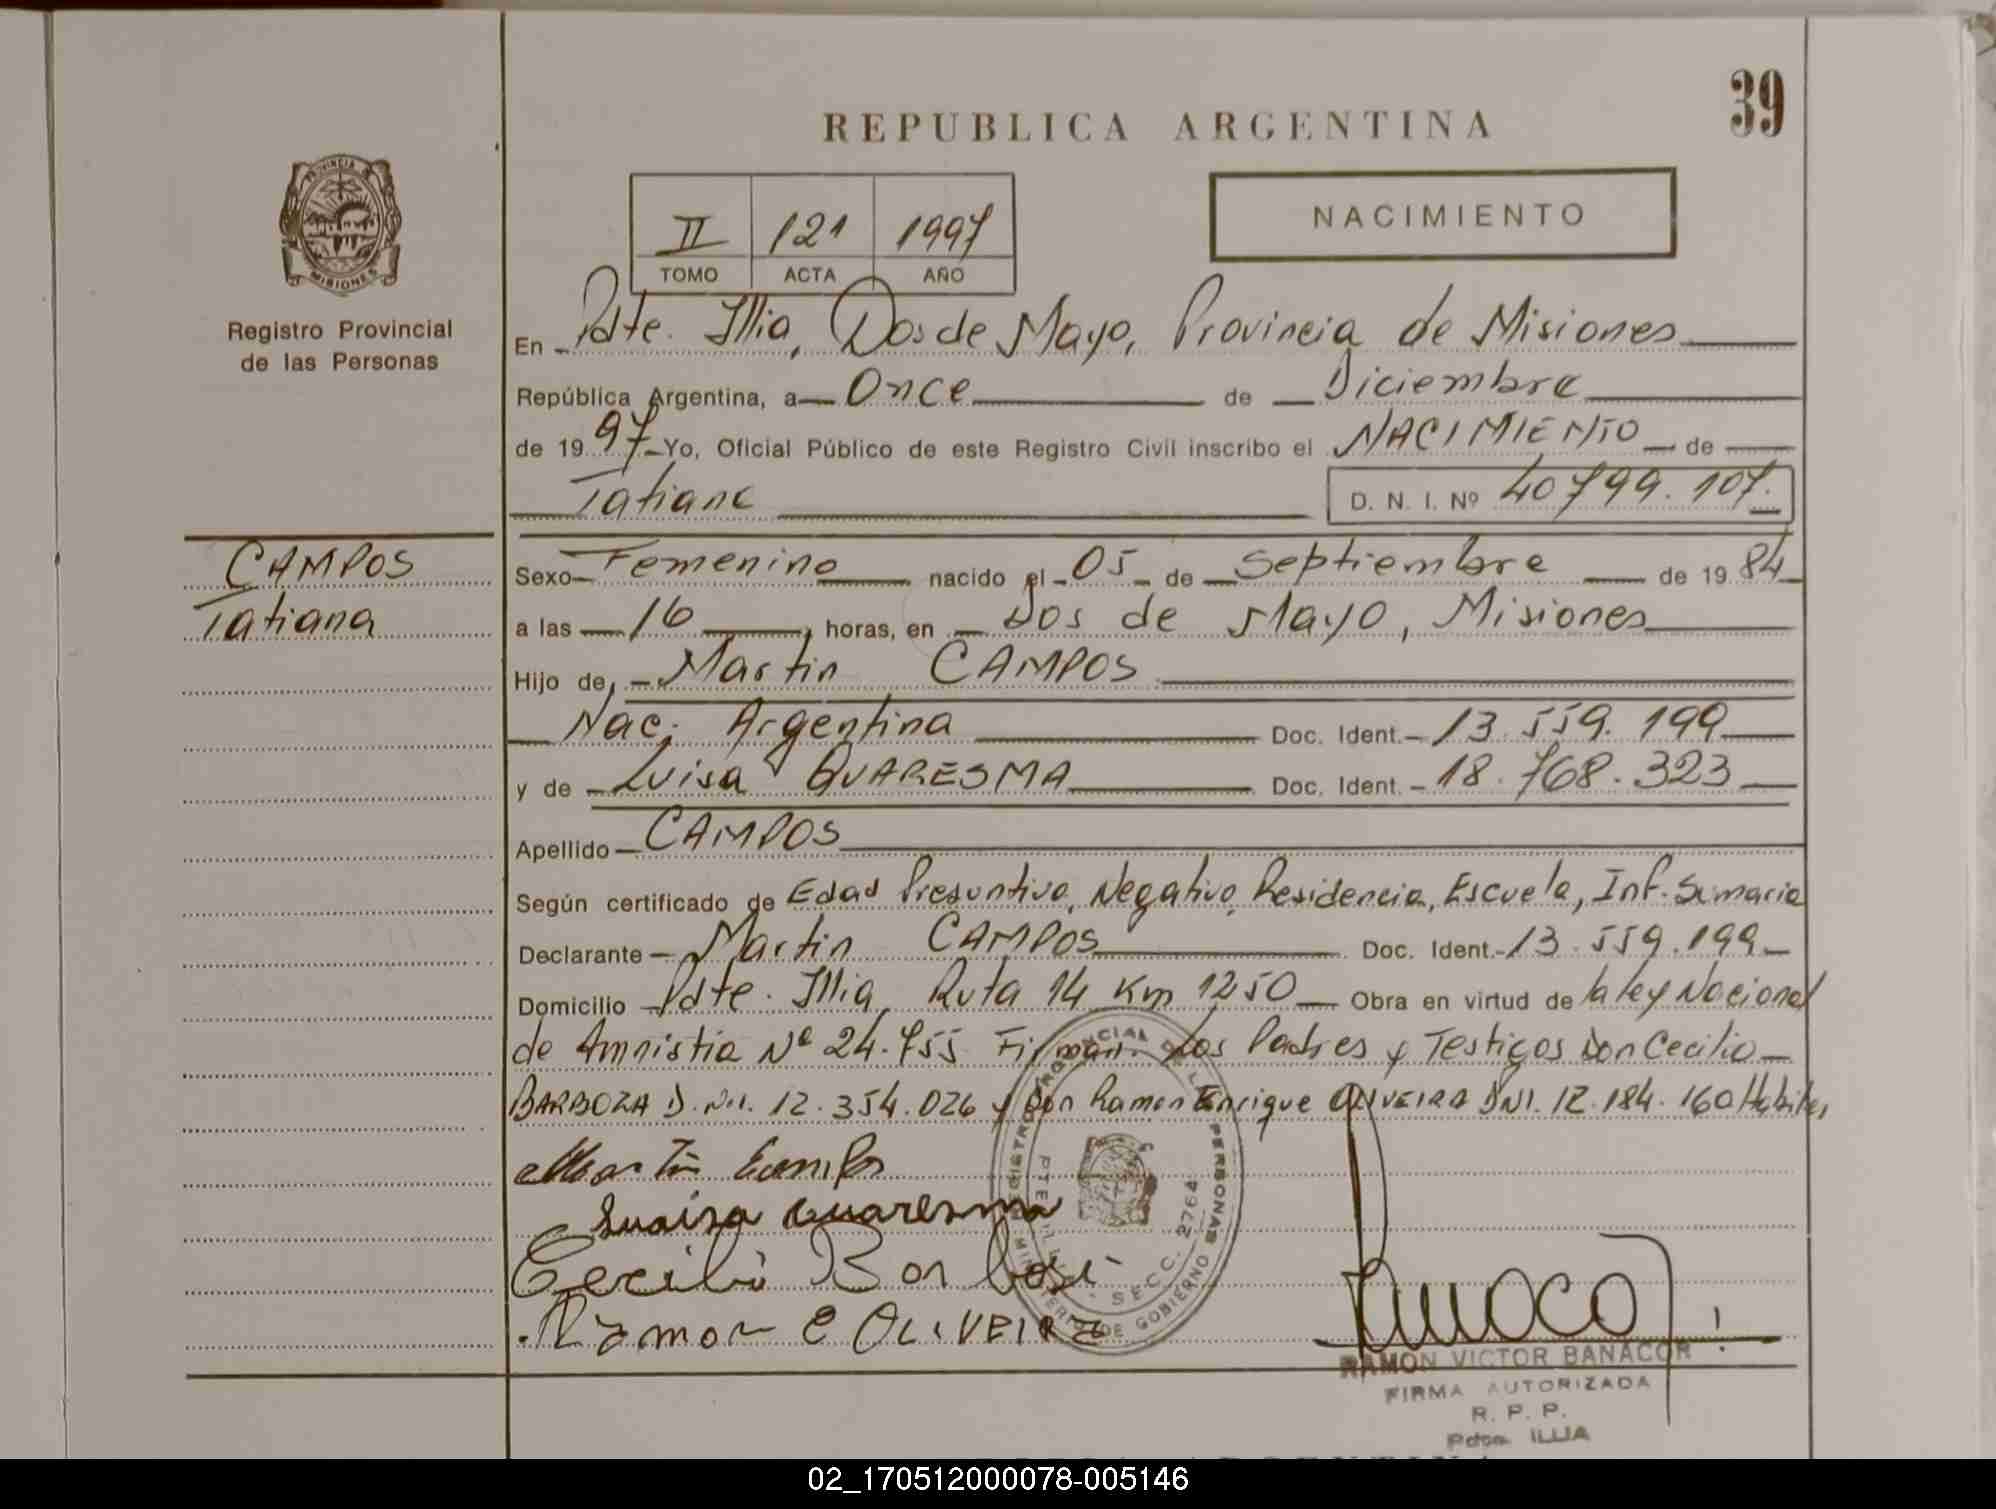 39
REPUBLICA ARGENTINA
PROVINCIA DE
MISIONES
Registro Provincial
de las Personas
II 121 1997
TOMO ACTA AÑO
NACIMIENTO
En Pdte. Illia, Dos de Mayo, Provincia de Misiones
República Argentina, a Once de Diciembre
de 1997 Yo, Oficial Público de este Registro Civil inscribo el NACIMIENTO de
Tatiana D. N. I. Nº 40799.107.
CAMPOS
Tatiana
Sexo Femenino nacido el 05 de Septiembre de 1984
a las 16 horas, en Dos de Mayo, Misiones
Hijo de Martin CAMPOS
Nac. Argentina Doc. Ident. 13.559.199
y de Luisa QUARESMA Doc. Ident. 18.768.323
Apellido CAMPOS
Según certificado de Edad Presuntiva, Negativo, Residencia, Escuela, Inf. Sumaria
Declarante Martin CAMPOS Doc. Ident. 13.559.199
Domicilio Pdte. Illia, Ruta 14 Km 1250 Obra en virtud de la ley Nacional
de Amnistia Nº 24.755 Firman. Los Padres y Testigos Don Cecilio
BARBOZA D.N.I. 12.354.026 y Don Ramon Enrique OLIVEIRA DNI. 12.184.160 Habiles
Martin Campos
Luaiza Quaresma
Cecilio Barboza
Ramon E OLIVEIRA
REGISTRO PROVINCIAL DE LAS PERSONAS
MINISTERIO DE GOBIERNO
SECC. 2764
RAMON VICTOR BANACOR
FIRMA AUTORIZADA
R. P. P.
Pdte. ILLIA
02_170512000078-005146